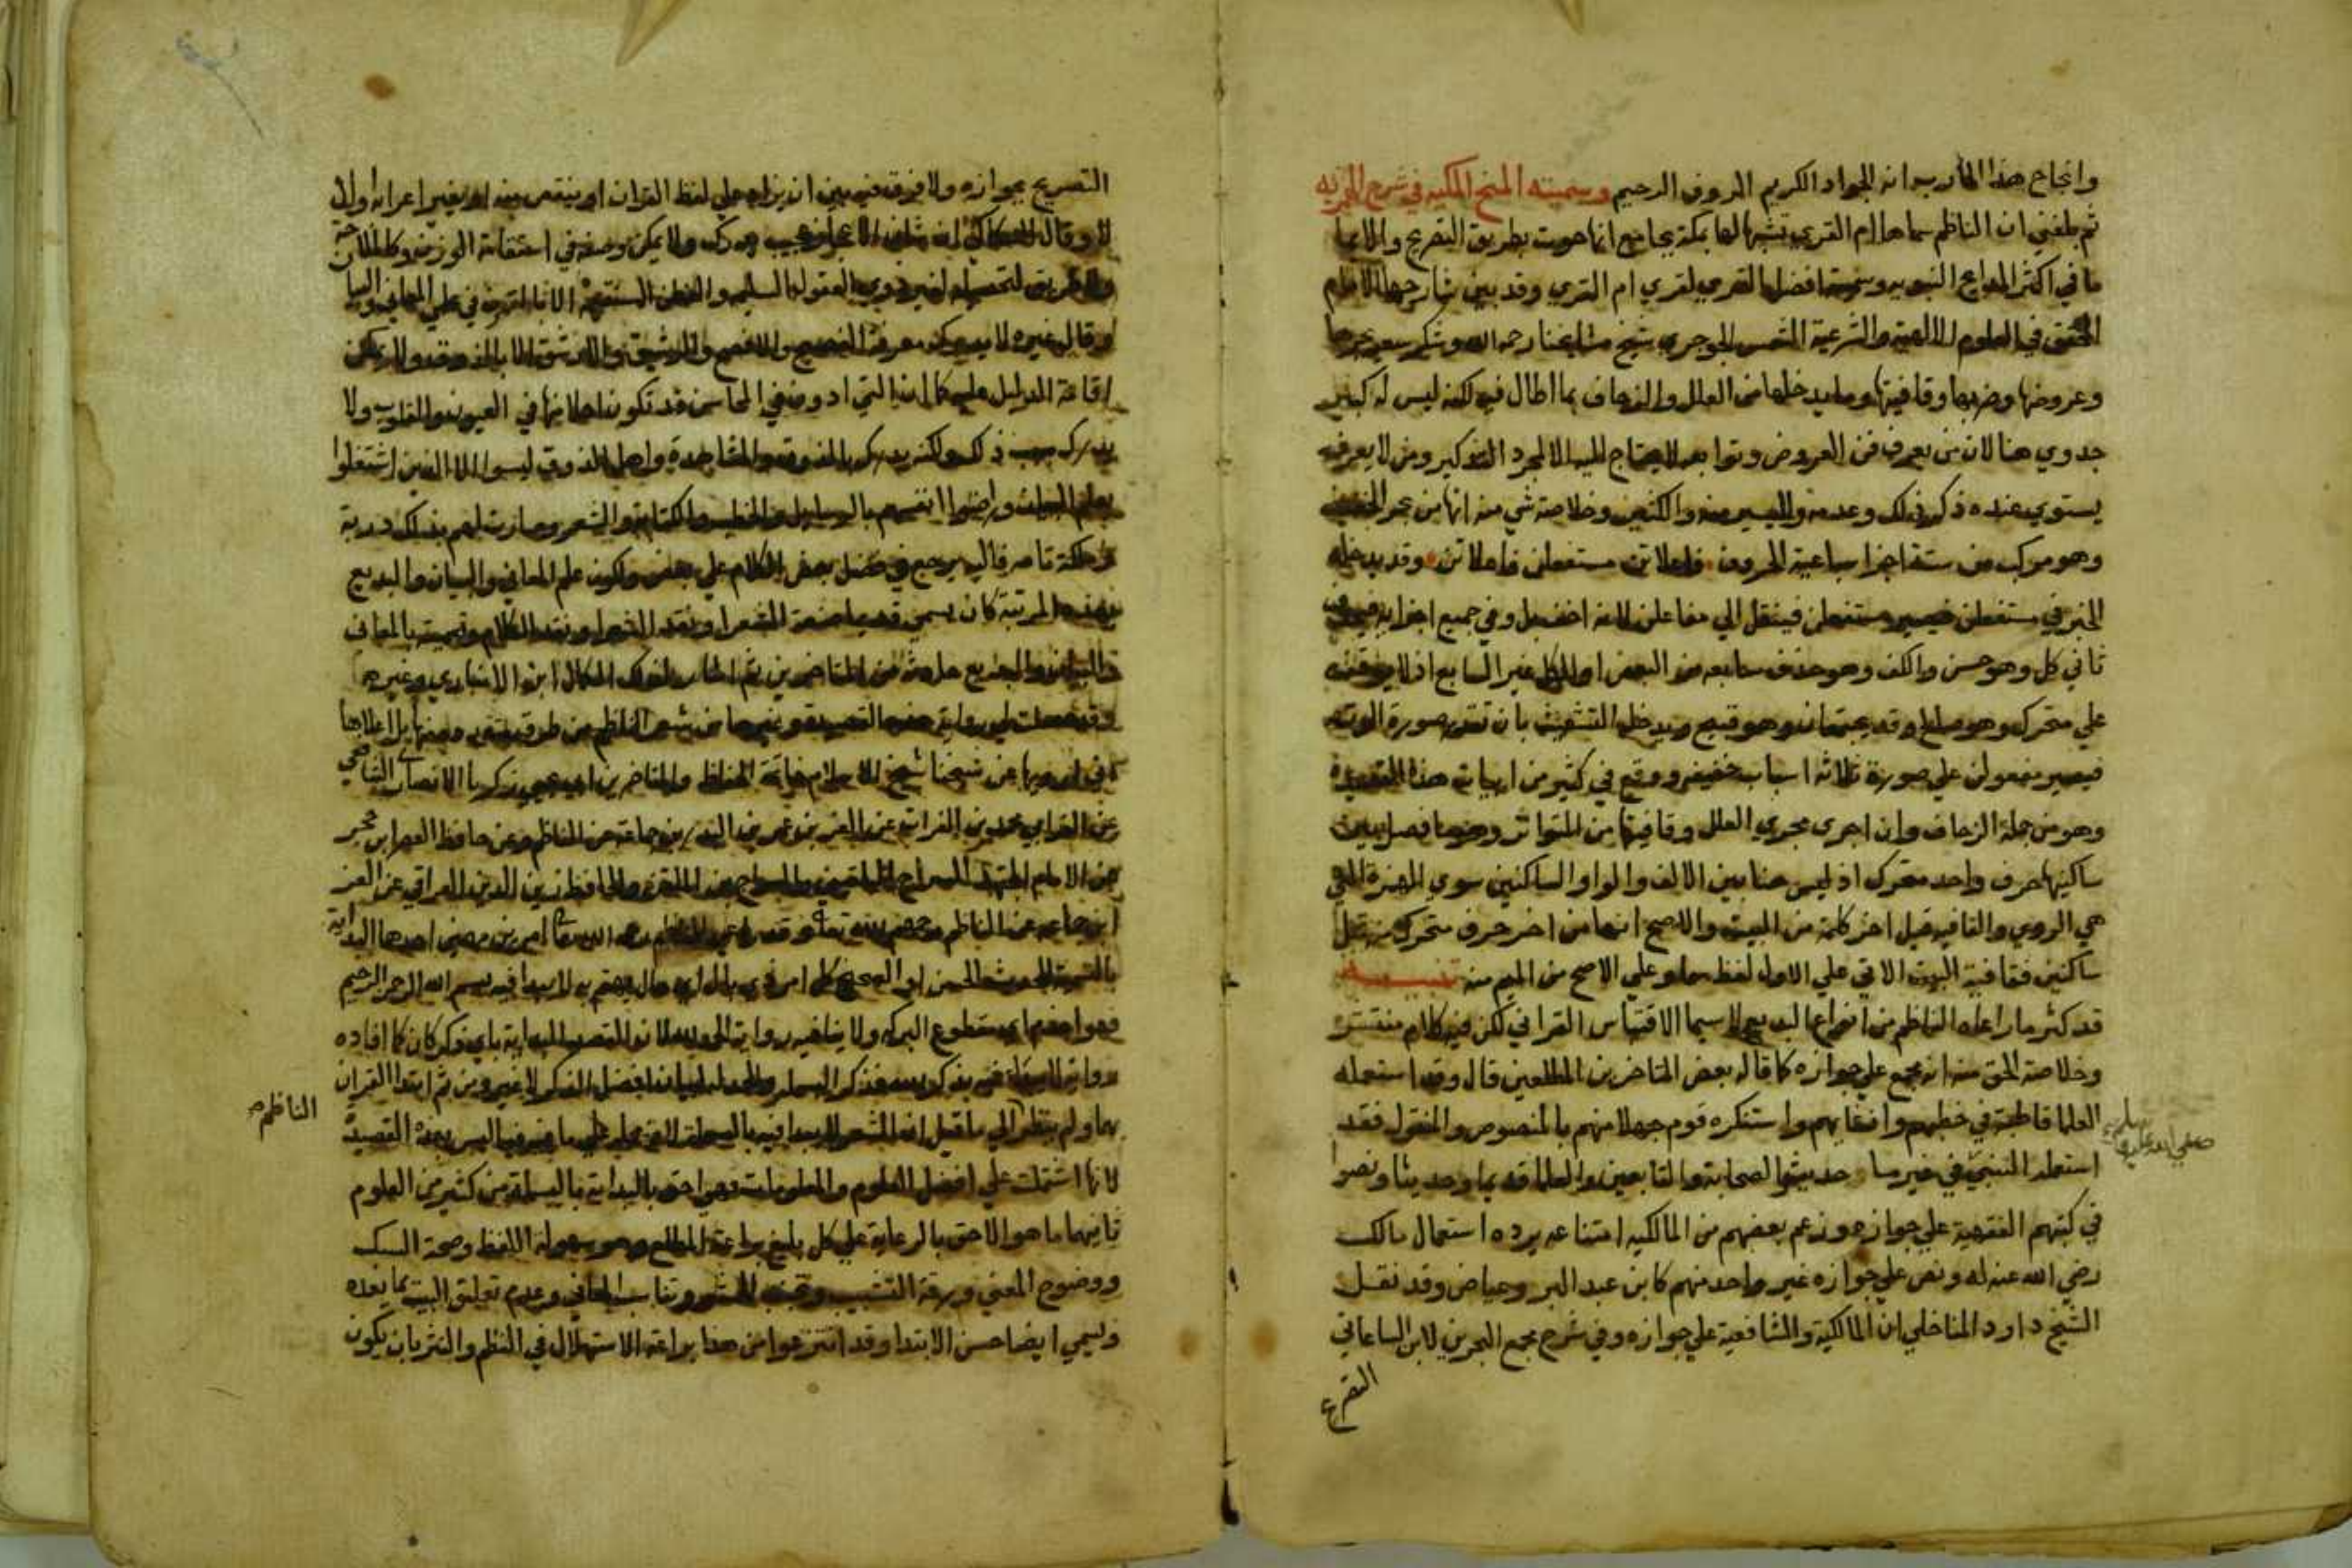 وانجاح هذا المارب انه الجواد الكريم الروف الرحيم وسميته المنح المكيه في شرح الهمزيه
ثم بلغني ان الناظم سماها ام القرى تشبيها لها بمكة بجامع انها حوت بطريق التصريح والايما
ما في اكثر المدايح النبويه القري لقري ام القري وقد بين شارحها الامام
المحقق في العلوم الالهية والشرعية الشمس الجوجري شيخ مشايخنا رحمه الله وشكر سعيه بحرها
وعروضها وضربها وقافيتها وما يدخلها من العلل والزحاف بما اطال فيه لكنه ليس له كبير
جدوي هنا لان من يعرف فن العروض وتوابعه لا يحتاج اليه الا لمجرد التذكير ومن لا يعرفه
يستوي عنده ذكر ذلك وعدمه واليسير منه والكثير وخلاصة شي منه انها من بحر الخفيف
وهو مركب من ستة اجزا سباعية الحروف فاعلاتن مستفعلن فاعلاتن وقد يدخله
الخبن في مستفعلن فيصير متفعلن فينقل الي مفاعلن لانه اخف وفي جميع اجزايه فيحذف
ثاني كل وهو حسن والكف وهو حذف سابعه من البعض او الكل غير السابع اذ لا يوقف
علي متحرك وهو صالح وقد يجتمعان وهو قبيح ويدخله التشعيث بان تقدر صورة الوتد
فيصير مفعولن علي صورة ثلاثة اسباب خفيفه ووقع في كثير من ابيات هذه القصيدة
وهو من جملة الزحاف وان اجري مجري العلل وقافيتها من المتواتر وهو ما فصل بين
ساكنيها حرف واحد متحرك اذ ليس هنا بين الالف والواو الساكنين سوي الهمزة التي
هي الروي والقافيه قيل اخر كلمة من البيت والاصح انها من اخر حرف متحرك قبل
ساكنين فقافية البيت الاتي علي الاول لفظ سما وعلي الاصح من الميم منه تنبيه
قد كثر ما راعاه الناظم من انواع البديع لا سيما الاقتباس القراني لكن فيه كلام منتشر
وخلاصة الحق منه انه مجمع علي جوازه كما قاله بعض المتاخرين المطلعين قال وقد استعمله
العلما قاطبة في خطبهم وانشاتهم واستنكره قوم جهلا منهم بالمنصوص والمنقول فقد
استعمله النبي في غير ما حديث والصحابة والتابعين والعلما قديما وحديثا ونصوا
صلي الله عليه وسلم
في كتبهم الفقهية علي جوازه وزعم بعضهم من المالكيه امتناعه يرده استعمال مالك
رضي الله عنه له ونص علي جوازه غير واحد منهم كابن عبد البر وعياض وقد نقل
الشيخ داود المناخلي ان المالكية والشافعية علي جوازه وفي شرح مجمع البحرين لابن الساعاتي
التصريح
التصريح بجوازه ولا فرق فيه بين ان يزاد علي لفظ القران او ينقص منه او يغير اعرابه اولا
لا وقال السكاكي ان شان الاعجاز عجيب يدرك ولا يمكن وصفه كاستقامة الوزن وكالملاحة
ولا طريق لتحصيله لغير ذوي العقول السليمه والفطن المستقيمة الا باتقان علمي المعاني والبيان
وقال غيره لا يدرك معرفة الفصيح والافصح والرشيق والارشق الا بالذوق ولا يمكن
اقامة الدليل عليه كما ان التي ادون في المحاسن قد تكون احلا منها في العيون والقلوب ولا
يدرك سبب ذلك ولكنه يدرك بالذوق والمشاهدة واهل الذوق ليسوا الا الذين اشتغلوا
بعلم البيان وراضوا انفسهم بالرسايل والخطب والكتابة والشعر وصارت لهم بذلك دربة
وملكة تامه فاليهم يرجع في فضل بعض الكلام علي بعض ولكون علم المعاني والبيان والبديع
بهذه المرتبة كان يسمي قديما صنعة الشعر او نقد الشعر او نقد الكلام وتسميته بالمعاني
والبيان والبديع حادث من المتاخرين ثم اشار لذلك الكمال ابن الانباري وغيره
وقد حصلت لي رواية هذه القصيدة وغيرها من شعر الناظم من طرق متعددة منها بل اعلاها
اني ارويها عن شيخنا شيخ الاسلام خاتمة الحفاظ والمتاخرين ابي يحيي زكريا الانصاري الشافعي
عن العز ابي محمد بن الفرات عن العز بن البدر بن جماعة عن الناظم وعن حافظ العصر ابن حجر
عن الامام المجتهد السراج البلقيني والسراج ابن الملقن والحافظ زين الدين العراقي عن العز
ابن جماعه عن الناظم رحمهم الله تعالي وقد راعي الناظم رحمه الله تعالي امرين مهمين احدها البداية
بالتسمية للحديث الحسن او الصحيح كل امر ذي بال اي حال يهتم به لا يبدا فيه ببسم الله الرحمن الرحيم
فهو اجذم اي مقطوع البركه ولا ينافيه رواية الحمد لله لان القصد البداية باي ذكر كان كما افاده
رواية لا يبدا فيه بذكر الله فذكر البسمله والحمدله لبيان افضل الذكر لا غير ومن ثم ابتدا القران
بهما ولم ينظر الي ما قيل ان الشعر لا يبدا فيه بالبسملة لان محله علي ما فيه ما ليس بهذه القصيدة
الناظم صح
لانها اشتملت علي افضل العلوم والمعلومات فهي احق بالبداية بالبسملة من كثير من العلوم
ثانيهما ما هو الاحق بالرعاية علي كل بليغ براعة المطلع وهو سهولة اللفظ وصحة السبك
ووضوح المعني ورقة التشبيب وتجنب الحشو وتناسب المعاني وعدم تعلق البيت بما بعده
ويسمي ايضا حسن الابتدا وقد انتزعوا من هذا براعة الاستهلال في النظم والنثر بان يكون